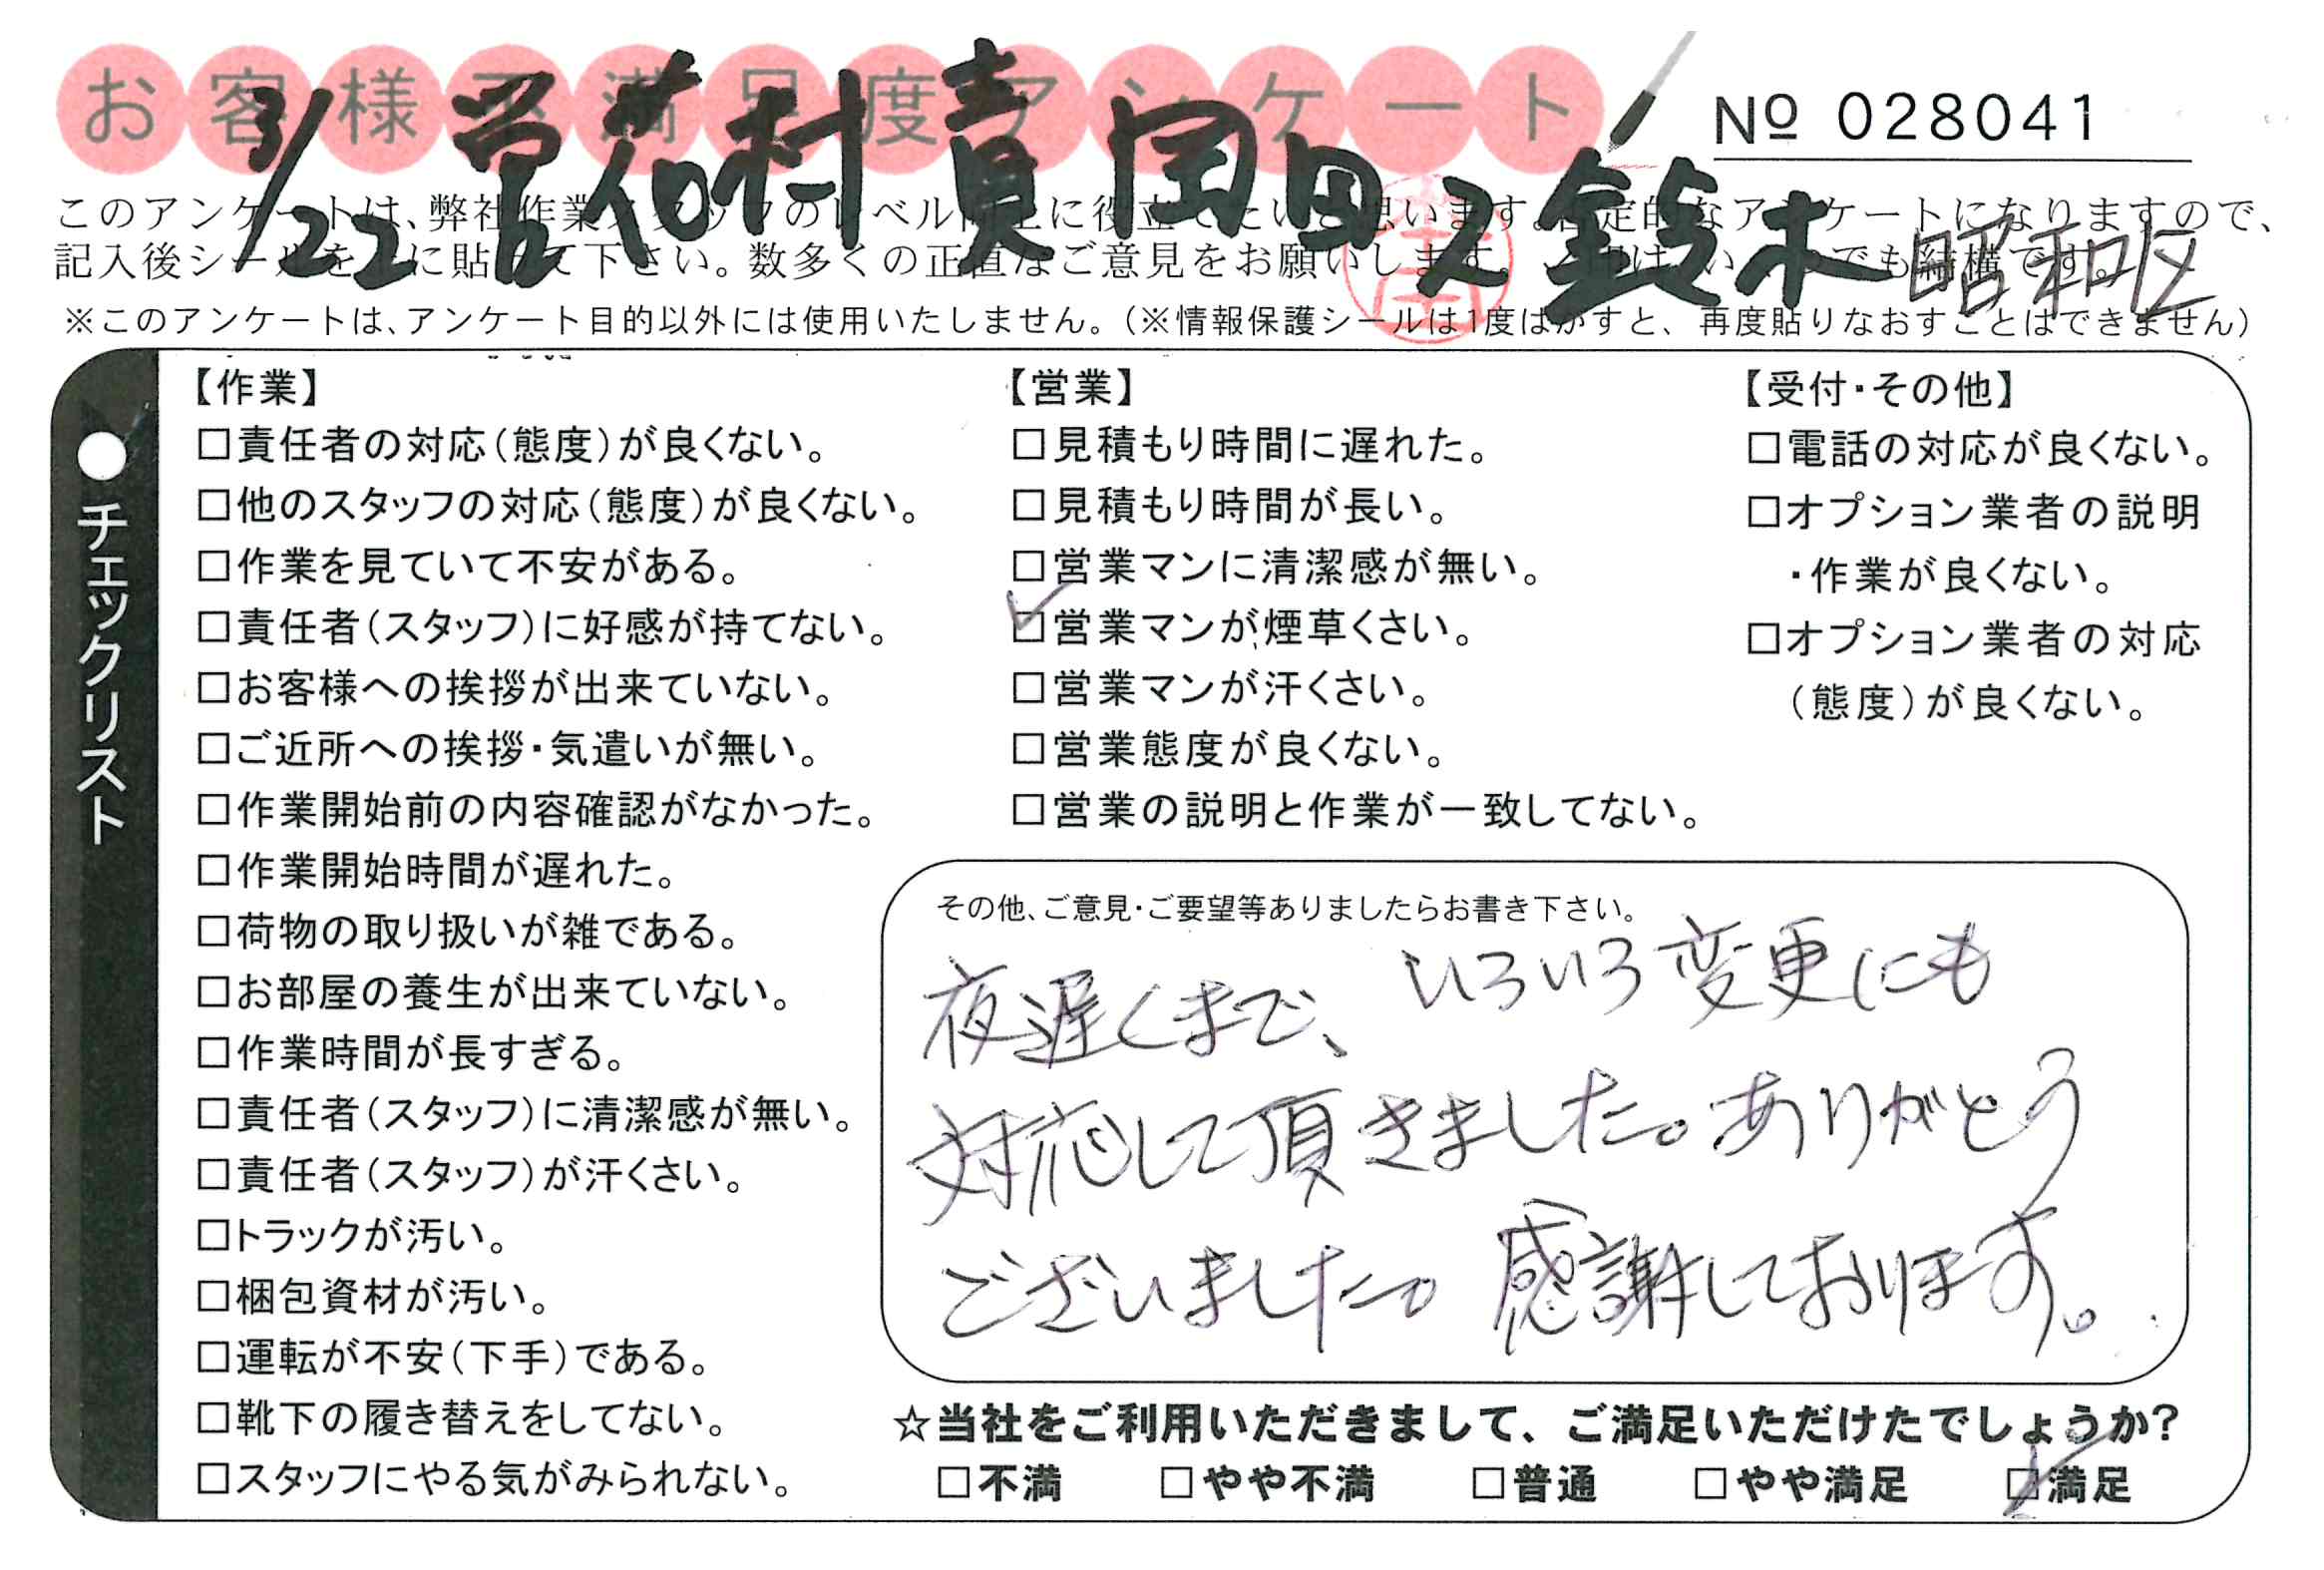 お客様不満足度アンケート
№ 028041
3/22 営花村 責岡田 ス鈴木 昭和区
このアンケートは、弊社作業スタッフのレベル向上に役立てたいと思います。否定的なアンケートになりますので、
記入後シールを上に貼って下さい。数多くの正直なご意見をお願いします。
※このアンケートは、アンケート目的以外には使用いたしません。(※情報保護シールは1度はがすと、再度貼りなおすことはできません)
●チェックリスト
【作業】
□責任者の対応(態度)が良くない。
□他のスタッフの対応(態度)が良くない。
□作業を見ていて不安がある。
□責任者(スタッフ)に好感が持てない。
□お客様への挨拶が出来ていない。
□ご近所への挨拶・気遣いが無い。
□作業開始前の内容確認がなかった。
□作業開始時間が遅れた。
□荷物の取り扱いが雑である。
□お部屋の養生が出来ていない。
□作業時間が長すぎる。
□責任者(スタッフ)に清潔感が無い。
□責任者(スタッフ)が汗くさい。
□トラックが汚い。
□梱包資材が汚い。
□運転が不安(下手)である。
□靴下の履き替えをしてない。
□スタッフにやる気がみられない。
【営業】
□見積もり時間に遅れた。
□見積もり時間が長い。
□営業マンに清潔感が無い。
☑営業マンが煙草くさい。
□営業マンが汗くさい。
□営業態度が良くない。
□営業の説明と作業が一致してない。
【受付・その他】
□電話の対応が良くない。
□オプション業者の説明
・作業が良くない。
□オプション業者の対応
(態度)が良くない。
その他、ご意見・ご要望等ありましたらお書き下さい。
夜遅くまで、いろいろ変更にも
対応して頂きました。ありがとう
ございました。感謝しております。
☆当社をご利用いただきまして、ご満足いただけたでしょうか?
□不満 □やや不満 □普通 □やや満足 ☑満足